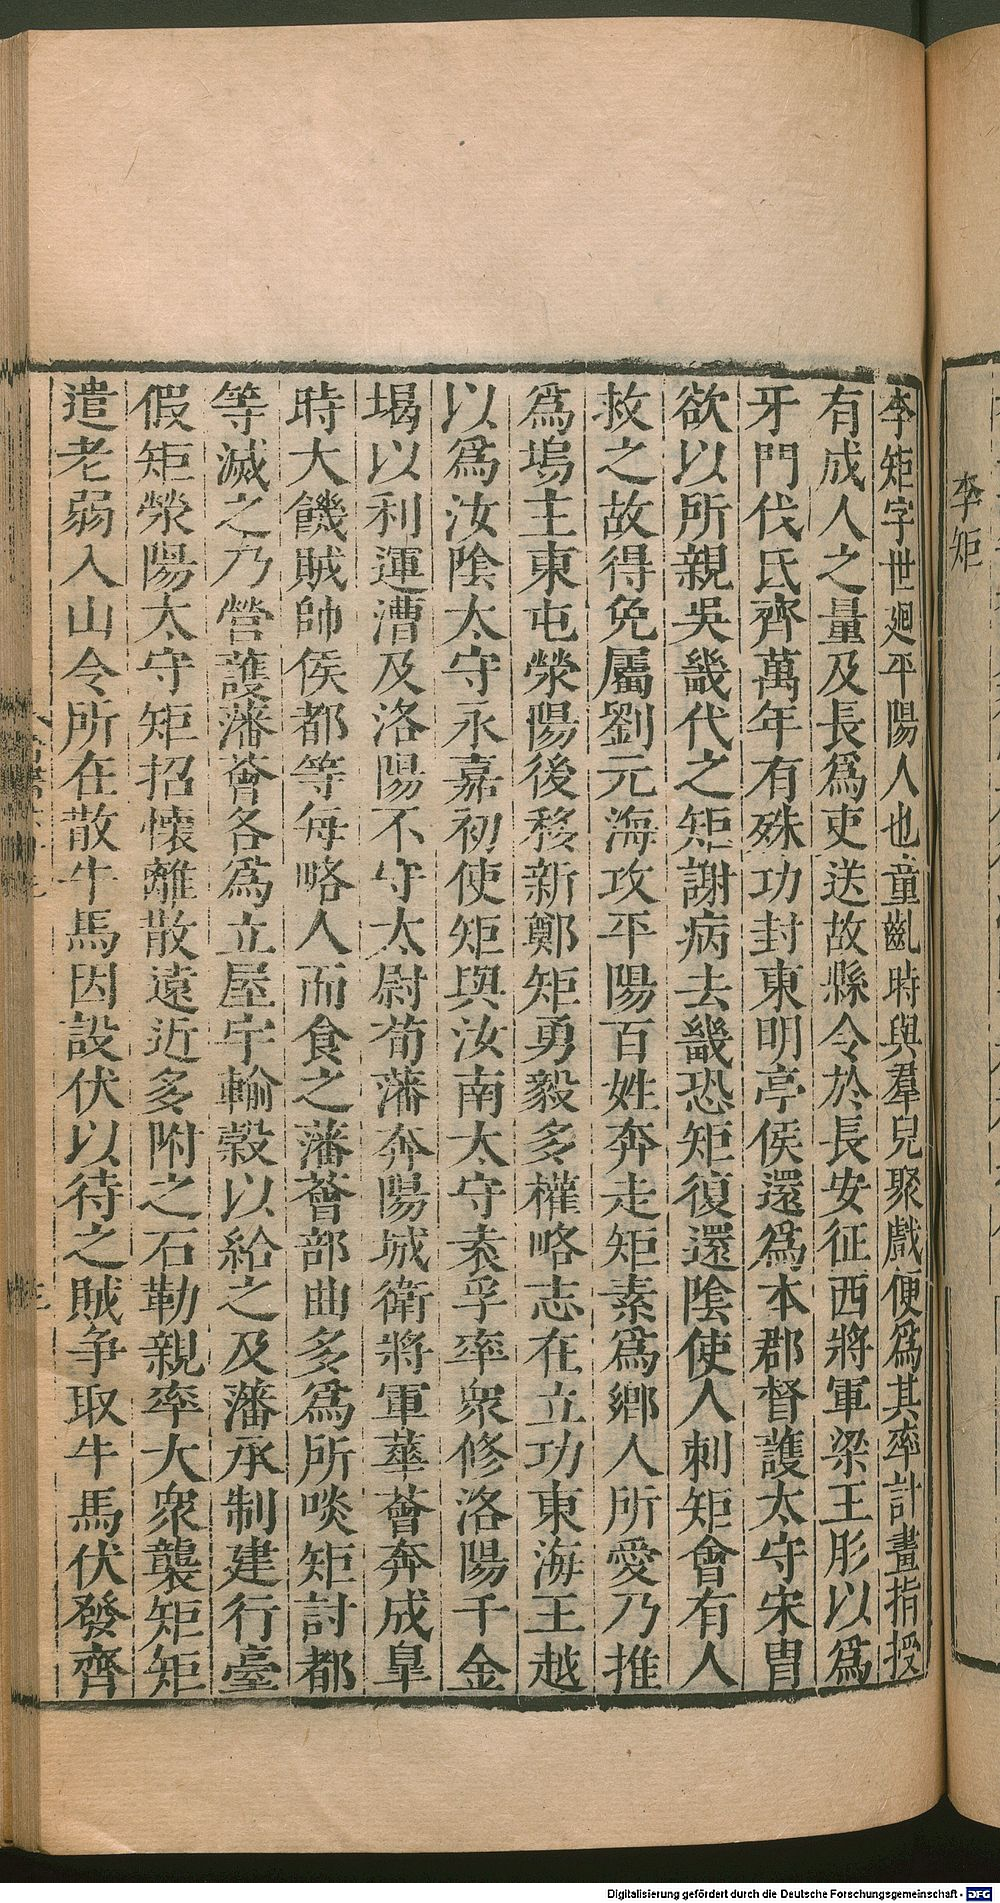 李矩
李矩字世廻平陽人也童齔時與羣兒聚戲便爲其率計畫指授
有成人之量及長爲吏送故縣令於長安征西將軍梁王肜以爲
牙門伐氐齊萬年有殊功封東明亭侯還爲本郡督護太守宋胄
欲以所親吳畿代之矩謝病去畿恐矩復還陰使人刺矩會有人
救之故得免屬劉元海攻平陽百姓奔走矩素爲鄉人所愛乃推
爲塢主東屯滎陽後移新鄭矩勇毅多權略志在立功東海王越
以爲汝陰太守永嘉初使矩與汝南太守袁孚率衆修洛陽千金
堨以利運漕及洛陽不守太尉荀藩奔陽城衛將軍華薈奔成皐
時大饑賊帥侯都等每略人而食之藩薈部曲多爲所啖矩討都
等滅之乃營護藩薈各爲立屋宇輸穀以給之及藩承制建行臺
假矩滎陽太守矩招懷離散遠近多附之石勒親率大衆襲矩矩
遣老弱入山令所在散牛馬因設伏以待之賊争取牛馬伏發齊
Digitalisierung gefördert durch die Deutsche Forschungsgemeinschaft - DFG